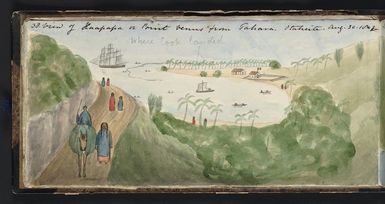 38. View of Haapapa or Point Venus from Tahara. Otaheite. Aug. 30. 1849
Where Cook Landed